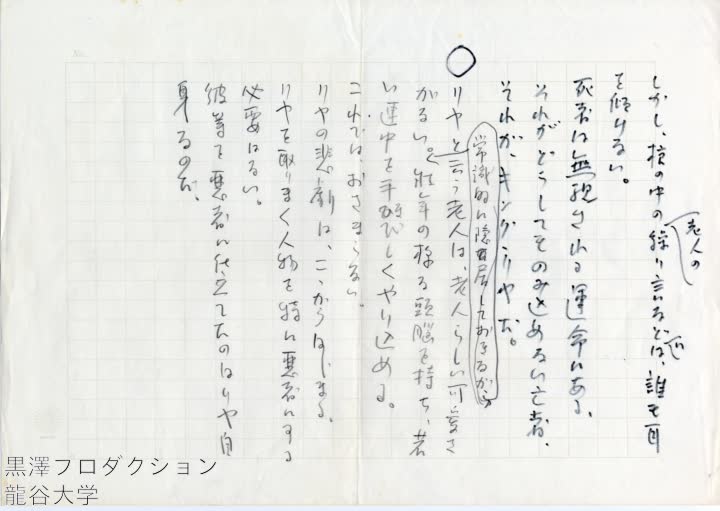 しかし、棺の中の老人の繰り言などに、誰も耳
を傾けない。
死者は無視される運命にある。
それがどうしてそのみ込めない亡者、
それが、キング・リヤだ。
常識的に隠居しておさまるから
リヤと言う老人は、老人らしい可愛さ
がない。壮年の様な頭脳を持ち、若
い連中を手酷びしくやり込める。
これでは、おさまらない。
リヤの悲劇は、ここからはじまる。
リヤを取りまく人物を特に悪者にする
必要はない。
彼等を悪者に仕立てたのはリヤ自
身なのだ。
黒澤プロダクション
龍谷大学